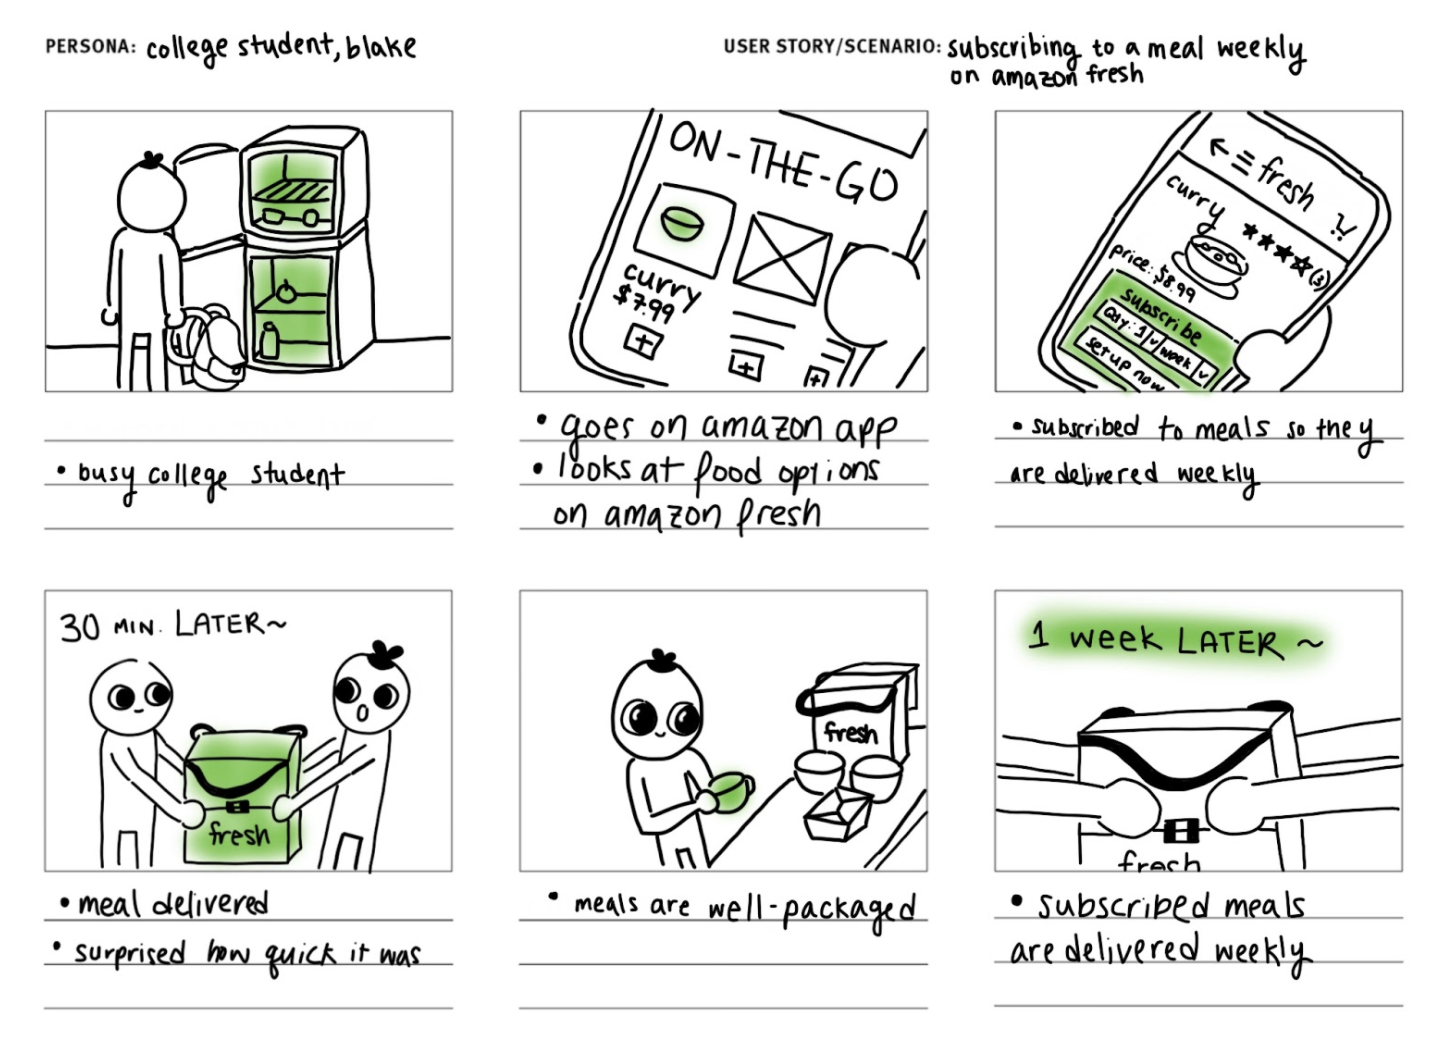 PERSONA: college student, blake
USER STORY/SCENARIO: subscribing to a meal weekly
on amazon fresh
• busy college student
ON-THE-GO
curry
$7.99
• goes on amazon app
• looks at food options
on amazon fresh
fresh
curry
(3)
price: $8.99
subscribe
Qty: 1 week
set up now
• subscribed to meals so they
are delivered weekly
30 MIN. LATER~
fresh
• meal delivered
• surprised how quick it was
fresh
• meals are well-packaged
1 week LATER ~
fresh
• subscribed meals
are delivered weekly